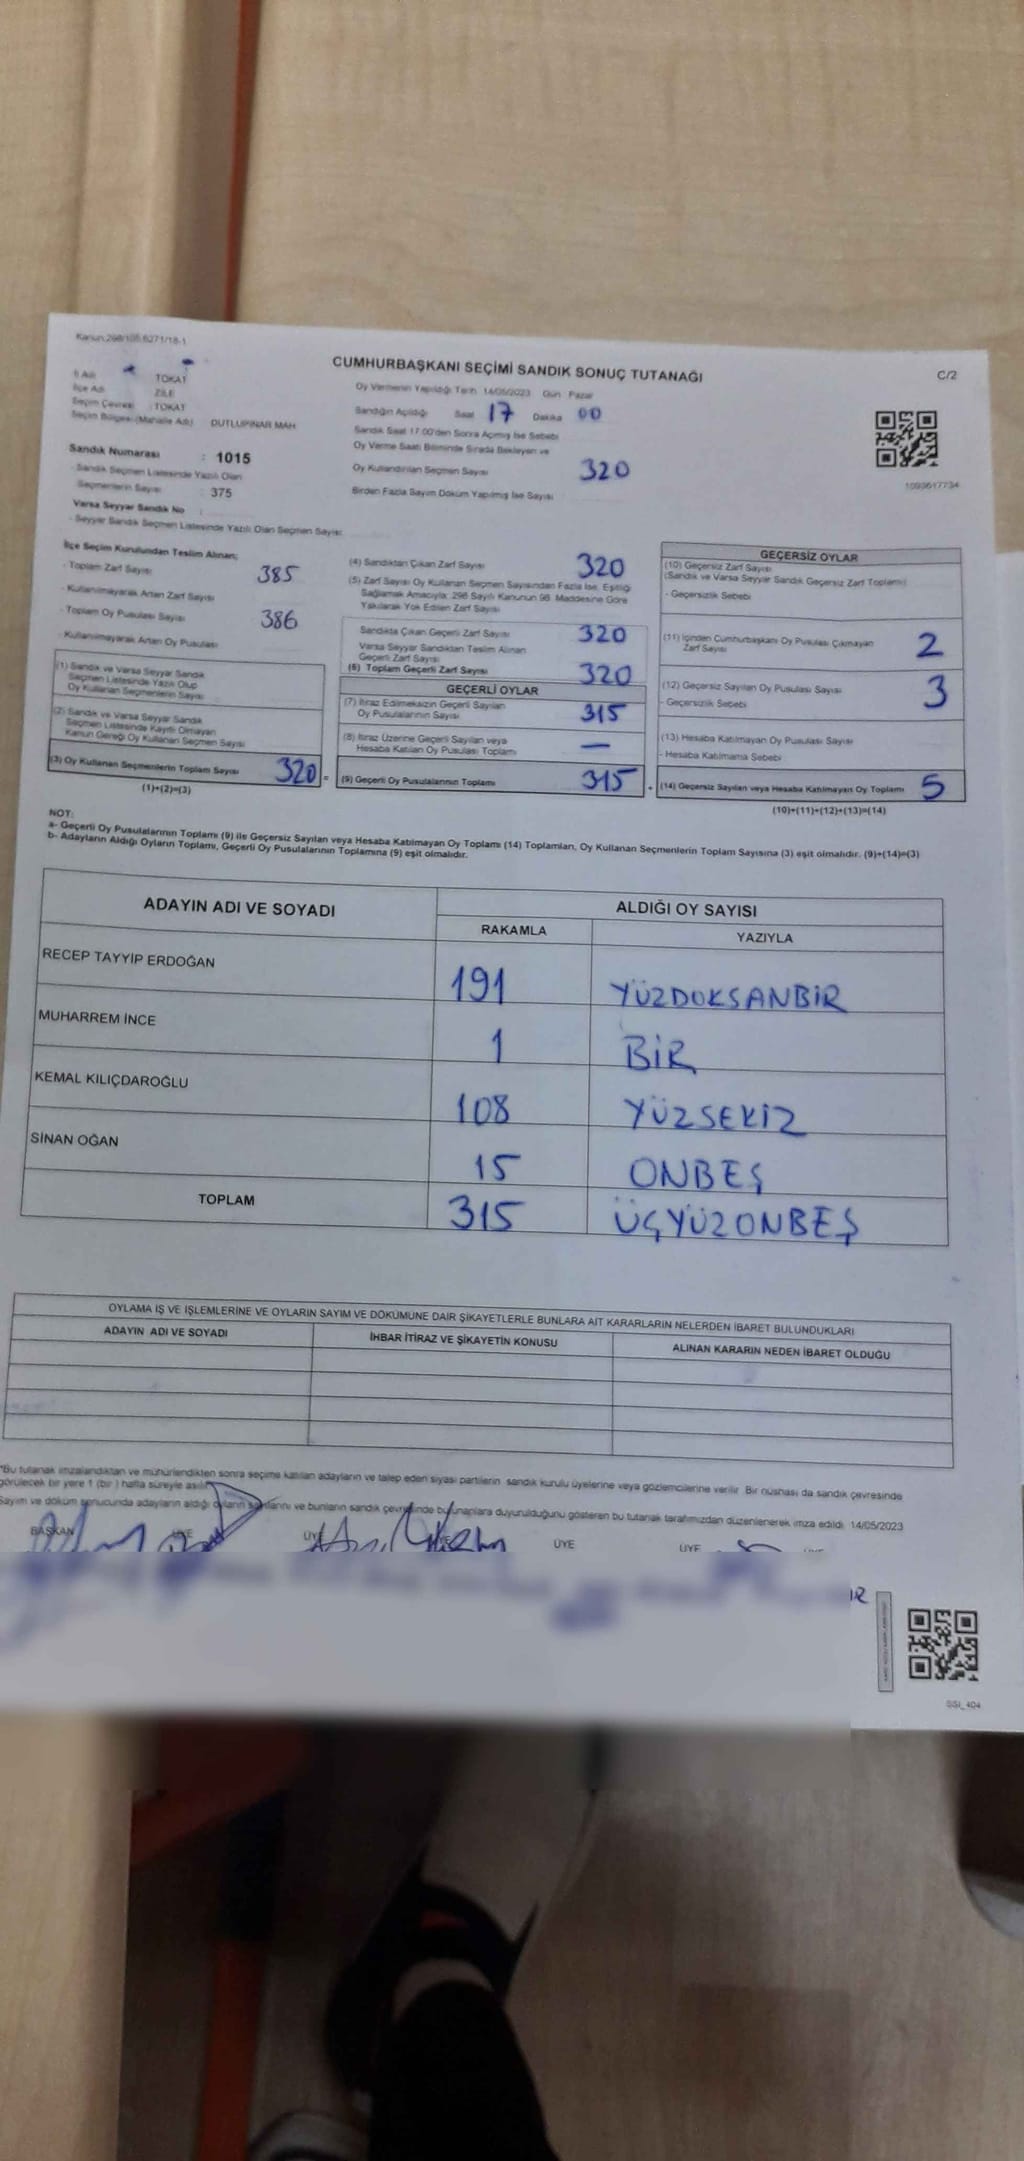 Kanun.298/105.6271/18-1
CUMHURBAŞKANI SEÇİMİ SANDIK SONUÇ TUTANAĞI
C/2
İl Adı TOKAT
İlçe Adı ZİLE
Seçim Çevresi : TOKAT
Seçim Bölgesi (Mahalle Adı) DUTLUPINAR MAH
Sandık Numarası : 1015
- Sandık Seçmen Listesinde Yazılı Olan
Seçmenlerin Sayısı : 375
Varsa Seyyar Sandık No :
- Seyyar Sandık Seçmen Listesinde Yazılı Olan Seçmen Sayısı:
Oy Vermenin Yapıldığı Tarih 14/05/2023 Gün Pazar
Sandığın Açıldığı Saat 17 Dakika 00
Sandık Saat 17:00'den Sonra Açılmış İse Sebebi
Oy Verme Saati Bitiminde Sırada Bekleyen ve
Oy Kullandırılan Seçmen Sayısı 320
Birden Fazla Sayım Döküm Yapılmış İse Sayısı
1093617734
İlçe Seçim Kurulundan Teslim Alınan;
- Toplam Zarf Sayısı 385
- Kullanılmayarak Artan Zarf Sayısı
- Toplam Oy Pusulası Sayısı 386
- Kullanılmayarak Artan Oy Pusulası
(1) Sandık ve Varsa Seyyar Sandık
Seçmen Listesinde Yazılı Olup
Oy Kullanan Seçmenlerin Sayısı
(2) Sandık ve Varsa Seyyar Sandık
Seçmen Listesinde Kayıtlı Olmayan
Kanun Gereği Oy Kullanan Seçmen Sayısı
(3) Oy Kullanan Seçmenlerin Toplam Sayısı 320 =
(1)+(2)=(3)
(4) Sandıktan Çıkan Zarf Sayısı 320
(5) Zarf Sayısı Oy Kullanan Seçmen Sayısından Fazla İse, Eşitliği
Sağlamak Amacıyla, 298 Sayılı Kanunun 98. Maddesine Göre
Yakılarak Yok Edilen Zarf Sayısı
Sandıkta Çıkan Geçerli Zarf Sayısı 320
Varsa Seyyar Sandıktan Teslim Alınan
Geçerli Zarf Sayısı
(6) Toplam Geçerli Zarf Sayısı 320
GEÇERLİ OYLAR
(7) İtiraz Edilmeksizin Geçerli Sayılan
Oy Pusulalarının Sayısı 315
(8) İtiraz Üzerine Geçerli Sayılan veya
Hesaba Katılan Oy Pusulası Toplamı —
(9) Geçerli Oy Pusulalarının Toplamı 315 +
GEÇERSİZ OYLAR
(10) Geçersiz Zarf Sayısı
(Sandık ve Varsa Seyyar Sandık Geçersiz Zarf Toplamı)
- Geçersizlik Sebebi
(11) İçinden Cumhurbaşkanı Oy Pusulası Çıkmayan
Zarf Sayısı 2
(12) Geçersiz Sayılan Oy Pusulası Sayısı 3
- Geçersizlik Sebebi
(13) Hesaba Katılmayan Oy Pusulası Sayısı
- Hesaba Katılmama Sebebi
(14) Geçersiz Sayılan veya Hesaba Katılmayan Oy Toplamı 5
(10)+(11)+(12)+(13)=(14)
NOT:
a- Geçerli Oy Pusulalarının Toplamı (9) ile Geçersiz Sayılan veya Hesaba Katılmayan Oy Toplamı (14) Toplamları, Oy Kullanan Seçmenlerin Toplam Sayısına (3) eşit olmalıdır. (9)+(14)=(3)
b- Adayların Aldığı Oyların Toplamı, Geçerli Oy Pusulalarının Toplamına (9) eşit olmalıdır.
ADAYIN ADI VE SOYADI ALDIĞI OY SAYISI
RAKAMLA YAZIYLA
RECEP TAYYİP ERDOĞAN 191 YÜZDOKSANBİR
MUHARREM İNCE 1 BİR
KEMAL KILIÇDAROĞLU 108 YÜZSEKİZ
SİNAN OĞAN 15 ONBEŞ
TOPLAM 315 ÜÇYÜZONBEŞ
OYLAMA İŞ VE İŞLEMLERİNE VE OYLARIN SAYIM VE DÖKÜMÜNE DAİR ŞİKAYETLERLE BUNLARA AİT KARARLARIN NELERDEN İBARET BULUNDUKLARI
ADAYIN ADI VE SOYADI İHBAR İTİRAZ VE ŞİKAYETİN KONUSU ALINAN KARARIN NEDEN İBARET OLDUĞU
*Bu tutanak imzalandıktan ve mühürlendikten sonra seçime katılan adayların ve talep eden siyasi partilerin sandık kurulu üyelerine veya gözlemcilerine verilir. Bir nüshası da sandık çevresinde
görülecek bir yere 1 (bir) hafta süreyle asılır.
Sayım ve döküm sonucunda adayların aldığı oyların sayılarını ve bunların sandık çevresinde bulunanlara duyurulduğunu gösteren bu tutanak tarafımızdan düzenlenerek imza edildi. 14/05/2023
BAŞKAN ÜYE ÜYE ÜYE ÜYE
SSI_404